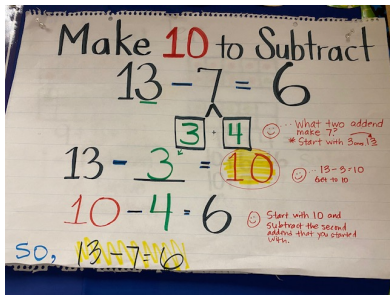 Make 10 to Subtract
13 - 7 = 6
3 + 4
What two addend
make 7?
* Start with 3 from 13
13 - 3 = 10
13-3=10
Get to 10
10 - 4 = 6
Start with 10 and
subtract the second
addend that you started
with.
so, 13-7=6